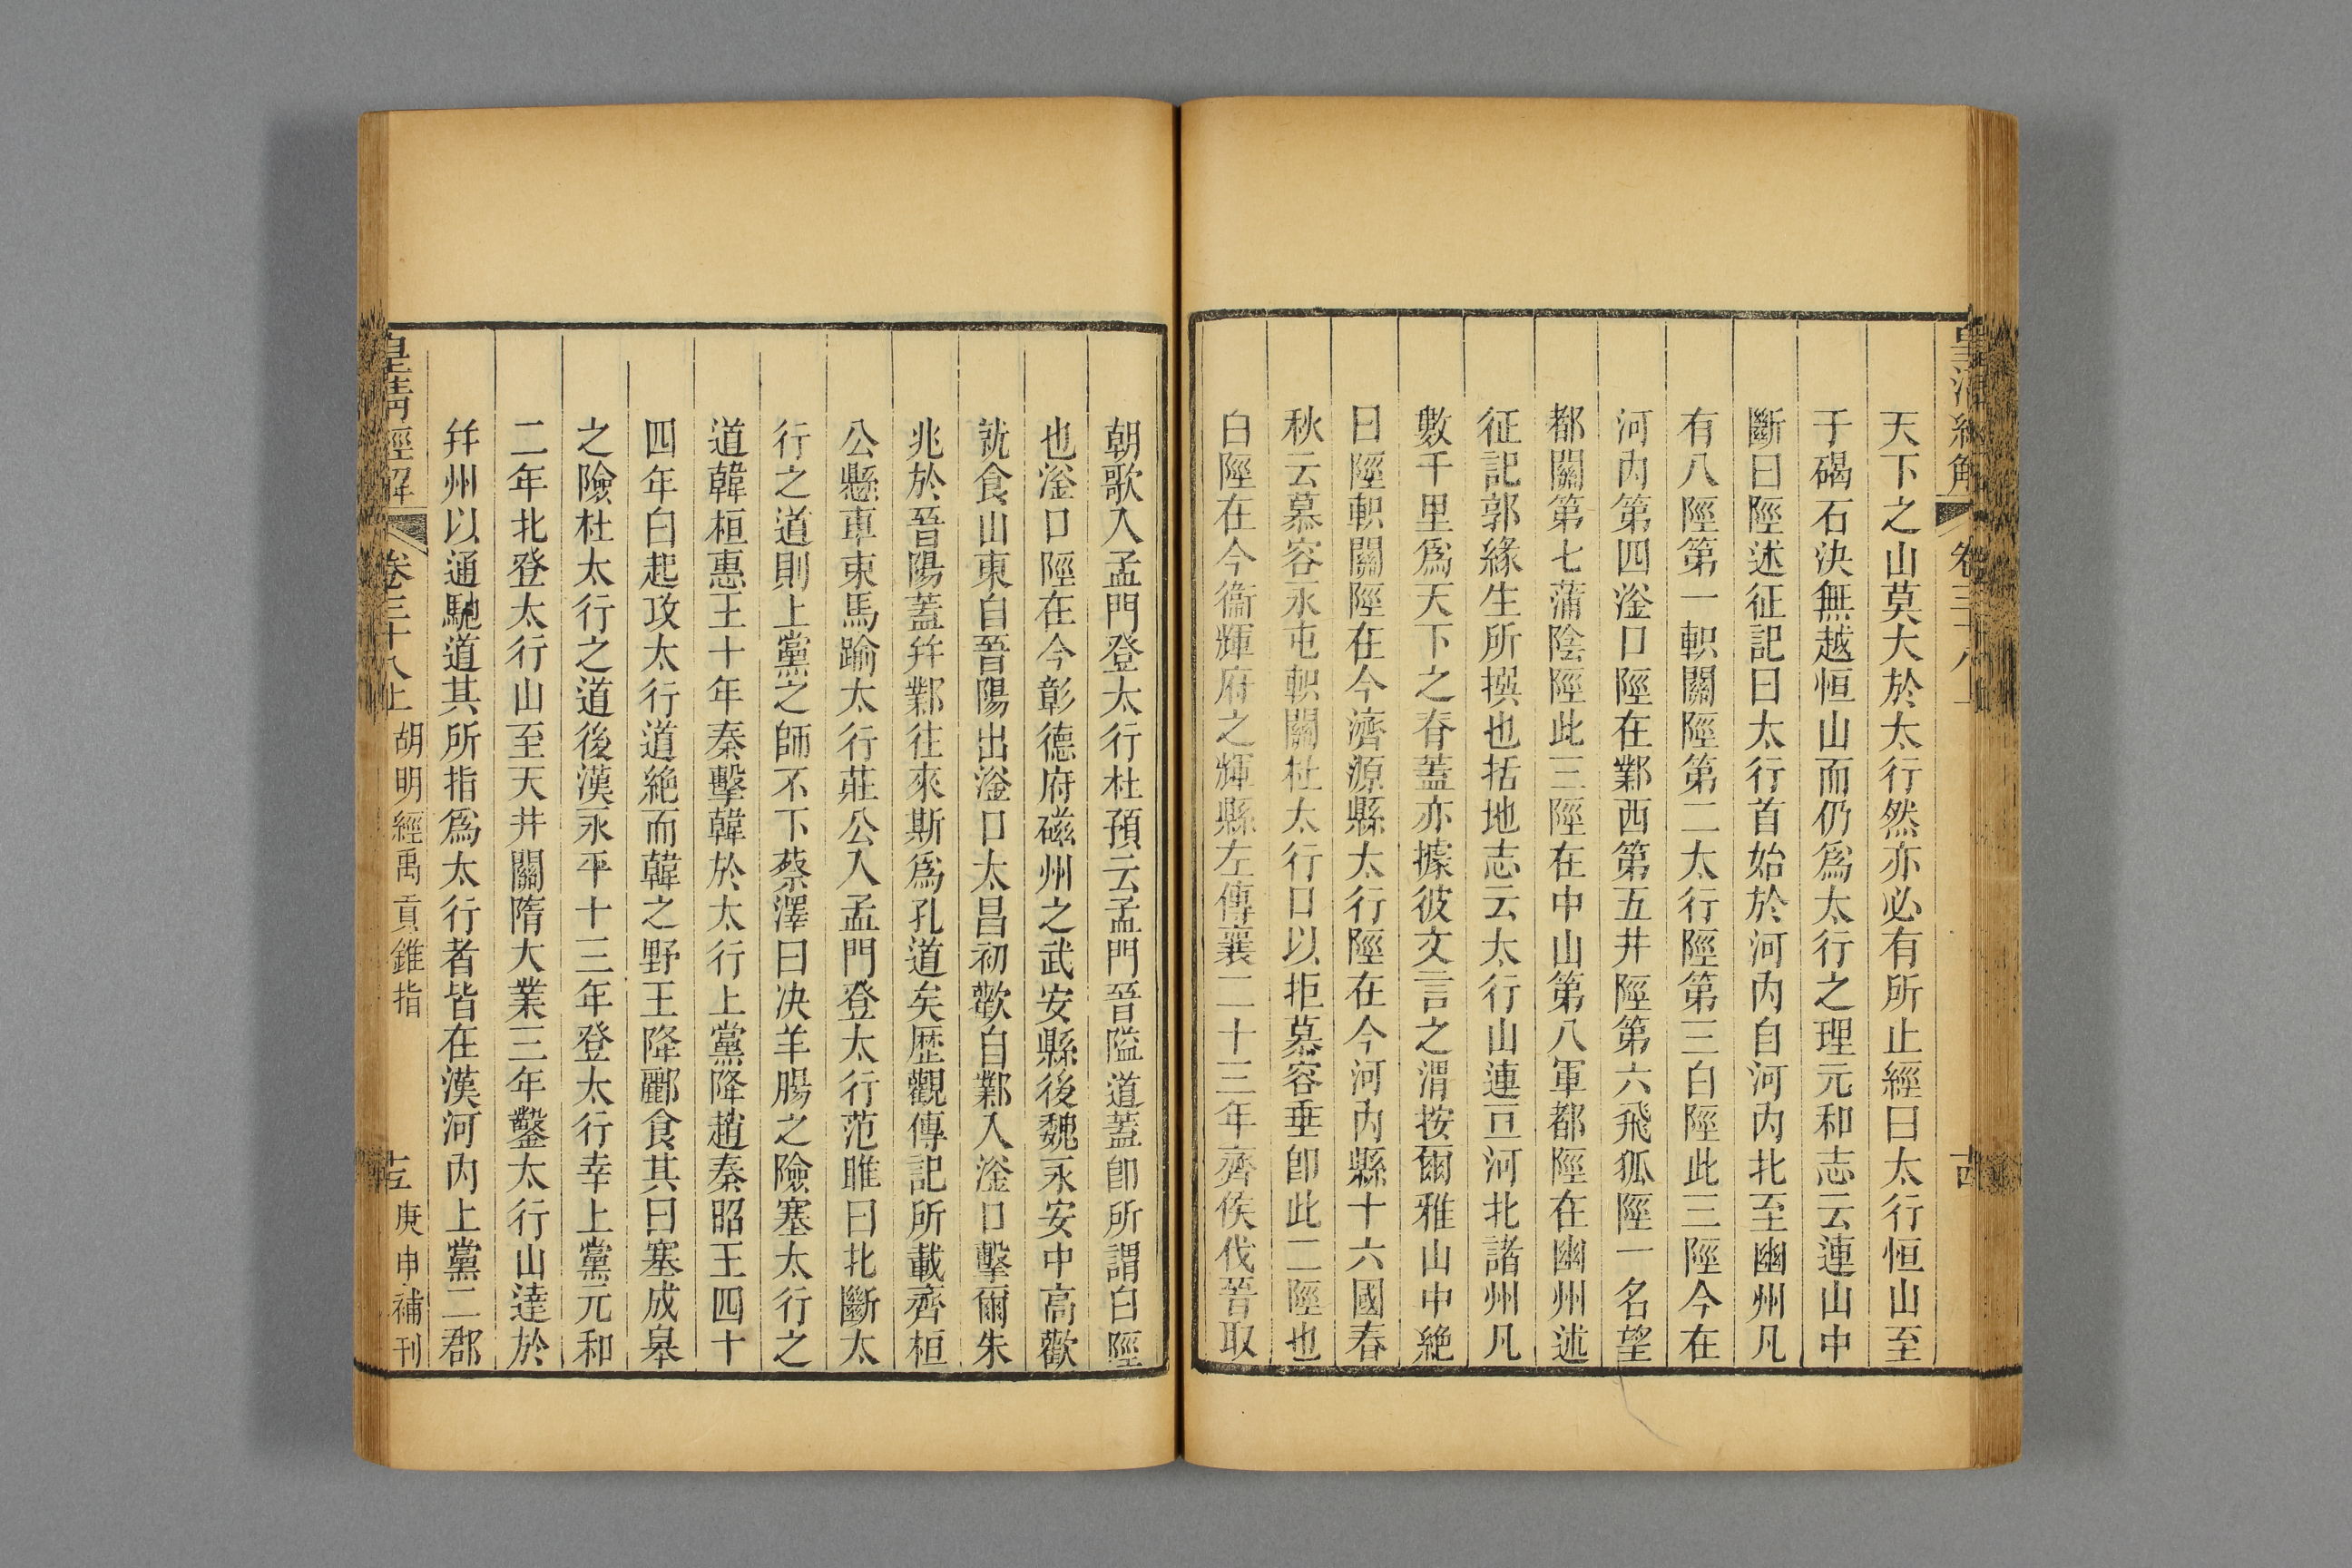 天下之山莫大於太行然亦必有所止經曰太行恒山至
于碣石決無越恒山而仍爲太行之理元和志云連山中
斷曰陘述征記曰太行首始於河內自河內北至幽州凡
有八陘第一軹關陘第二太行陘第三白陘此三陘今在
河內第四滏口陘在鄴西第五井陘第六飛狐陘一名望
都關第七蒲陰陘此三陘在中山第八軍都陘在幽州述
征記郭緣生所撰也括地志云太行山連亘河北諸州凡
數千里爲天下之脊蓋亦據彼文言之渭按爾雅山中絶
曰陘軹關陘在今濟源縣太行陘在今河內縣十六國春
秋云慕容永屯軹關杜太行口以拒慕容垂卽此二陘也
白陘在今衞輝府之輝縣左傳襄二十三年齊侯伐晉取
朝歌入孟門登太行杜預云孟門晉隘道蓋卽所謂白陘
也滏口陘在今彰德府磁州之武安縣後魏永安中高歡
就食山東自晉陽出滏口太昌初歡自鄴入滏口擊爾朱
兆於晉陽蓋幷鄴往來斯爲孔道矣歷觀傳記所載齊桓
公懸車束馬踰太行莊公入孟門登太行范雎曰北斷太
行之道則上黨之師不下蔡澤曰决羊腸之險塞太行之
道韓桓惠王十年秦擊韓於太行上黨降趙秦昭王四十
四年白起攻太行道絶而韓之野王降酈食其曰塞成皋
之險杜太行之道後漢永平十三年登太行幸上黨元和
二年北登太行山至天井關隋大業三年鑿太行山達於
幷州以通馳道其所指爲太行者皆在漢河內上黨二郡
皇清經解 卷三十八上 胡明經禹貢錐指 庚申補刊